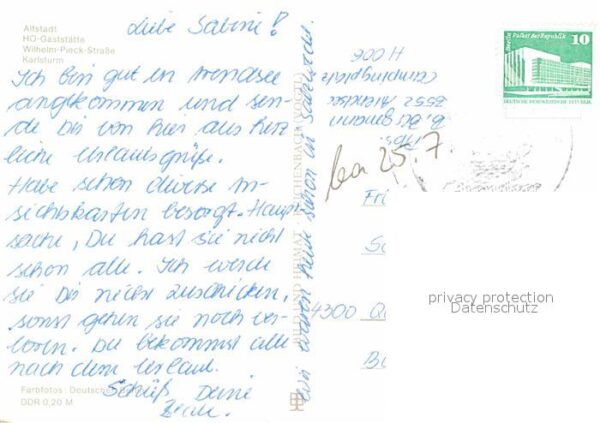 Altstadt
HO-Gaststätte
Wilhelm-Pieck-Straße
Karlsturm
Liebe Sabine!
Ich bin gut in Arendsee
angekommen und sen-
de Dir von hier aus herz-
liche Urlaubsgrüße.
Habe schon diverse An-
sichtskarten besorgt. Haupt-
sache, Du hast sie nicht
schon alle. Ich werde
sie Dir nicht zuschicken,
sonst gehen sie noch ver-
loren. Du bekommst alle
nach dem Urlaub.
Tschüß Deine
Wir waren heute schon in Salzwedel.
Farbfotos: Deutscher
DDR 0,20 M
BILD UND HEIMAT REICHENBACH (VOGTL)
3552 Arendsee
Campingplatz
H 006
25.7.
Berlin, Palast der Republik
10
DEUTSCHE DEMOKRATISCHE REPUBLIK
4300
privacy protection
Datenschutz